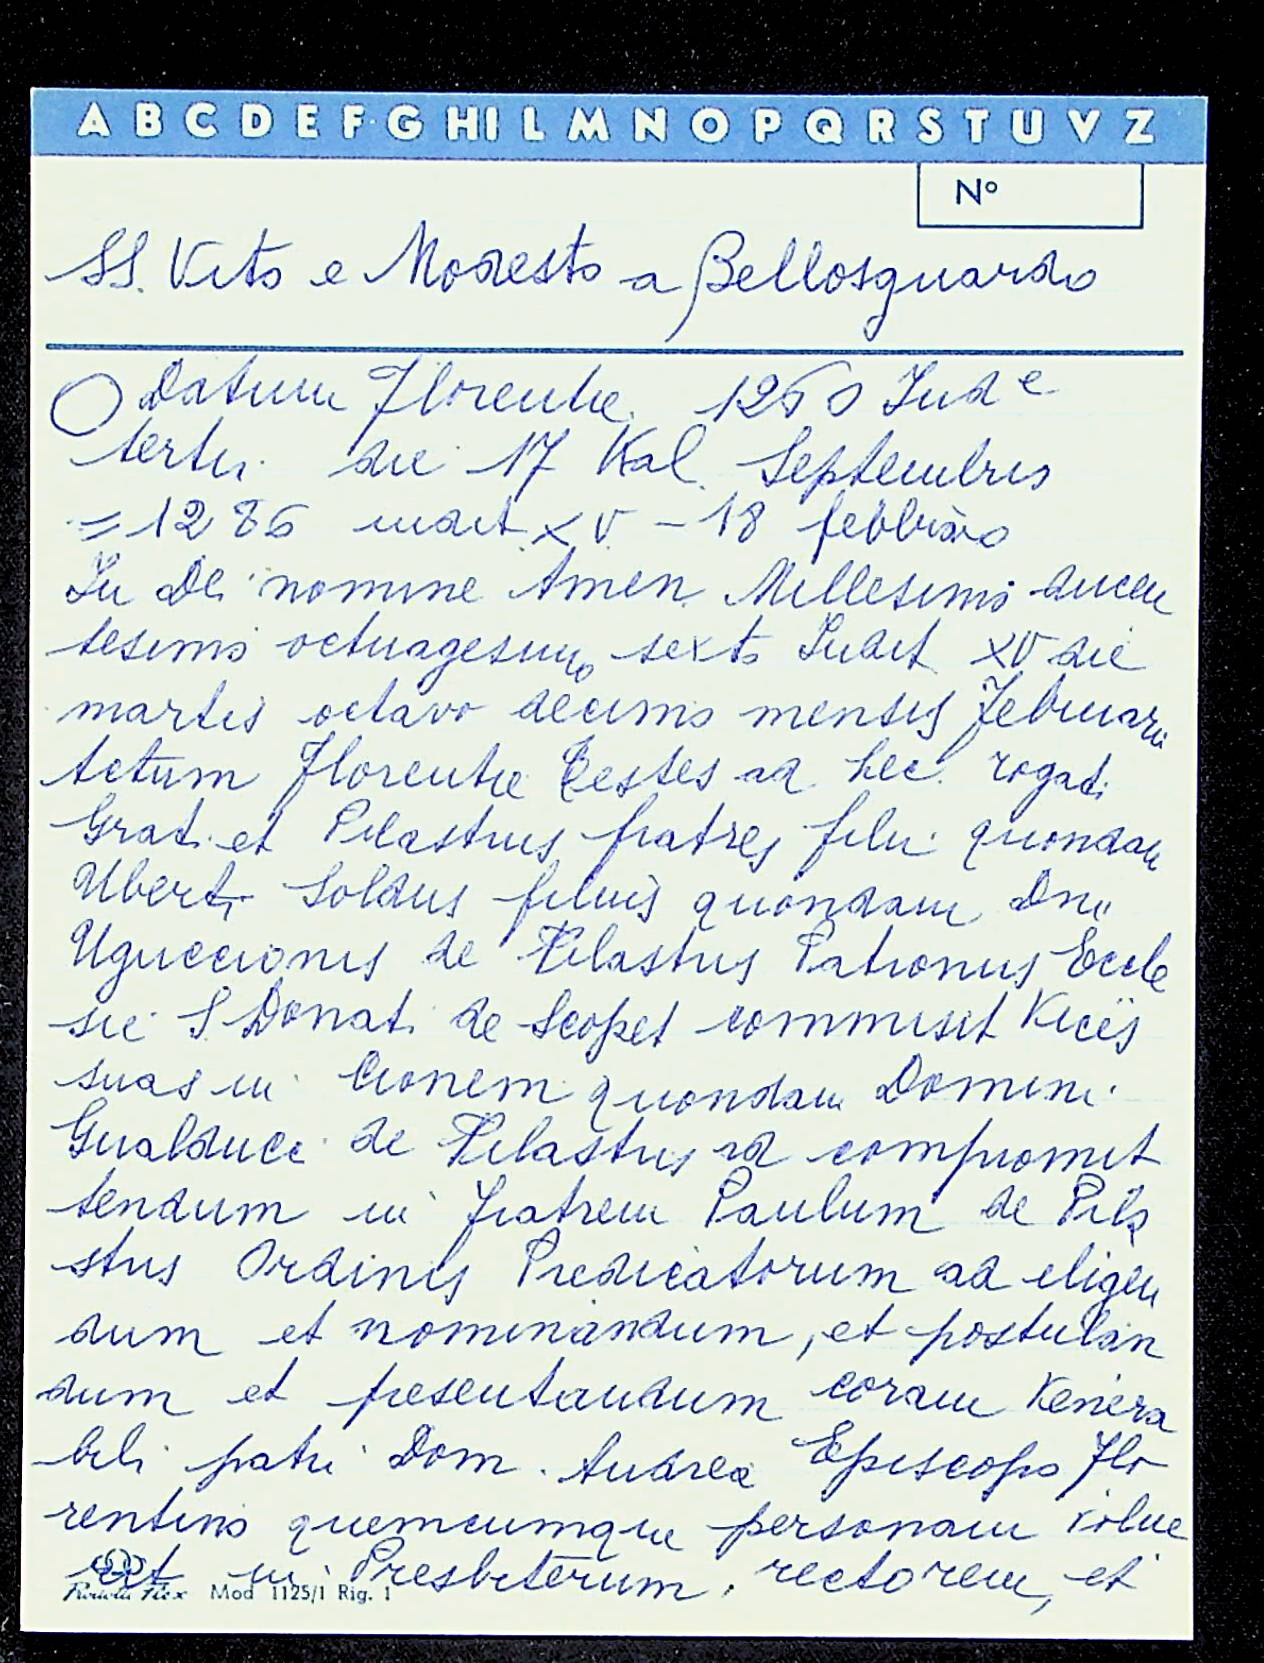 A B C D E F G H I L M N O P Q R S T U V Z
N°
SS. Vito e Modesto a Bellosguardo
Datum Florentie 1260 Ind e
tertia die 17 Kal. Septembris
= 1286 indit XV - 18 febbraio
In Dei nomine Amen Millesimo ducen
tesimo octuagesimo sexto Indit XV die
martis octavo decimo mensis Februarii
Actum Florentie testes ad hec rogati
Grati et Pilastrus fratres filii quondam
Uberti Soldus filius quondam Dni
Uguccionis de Pilastris Patronus Eccle
sie S Donati de Scopet commisit Vices
suas in Cionem quondam Domini
Gualducci de Pilastris ad compromit
tendum in fratrem Paulum de Pila
stris Ordinis Predicatorum ad eligen
dum et nominandum, et postulan
dum et presentandum coram Venera
bili patri Dom. Andrea Episcopo Flo
rentino quemcumque personam volue
rit in Presbiterum, rectorem, et
Mod 1125/1 Rig. 1